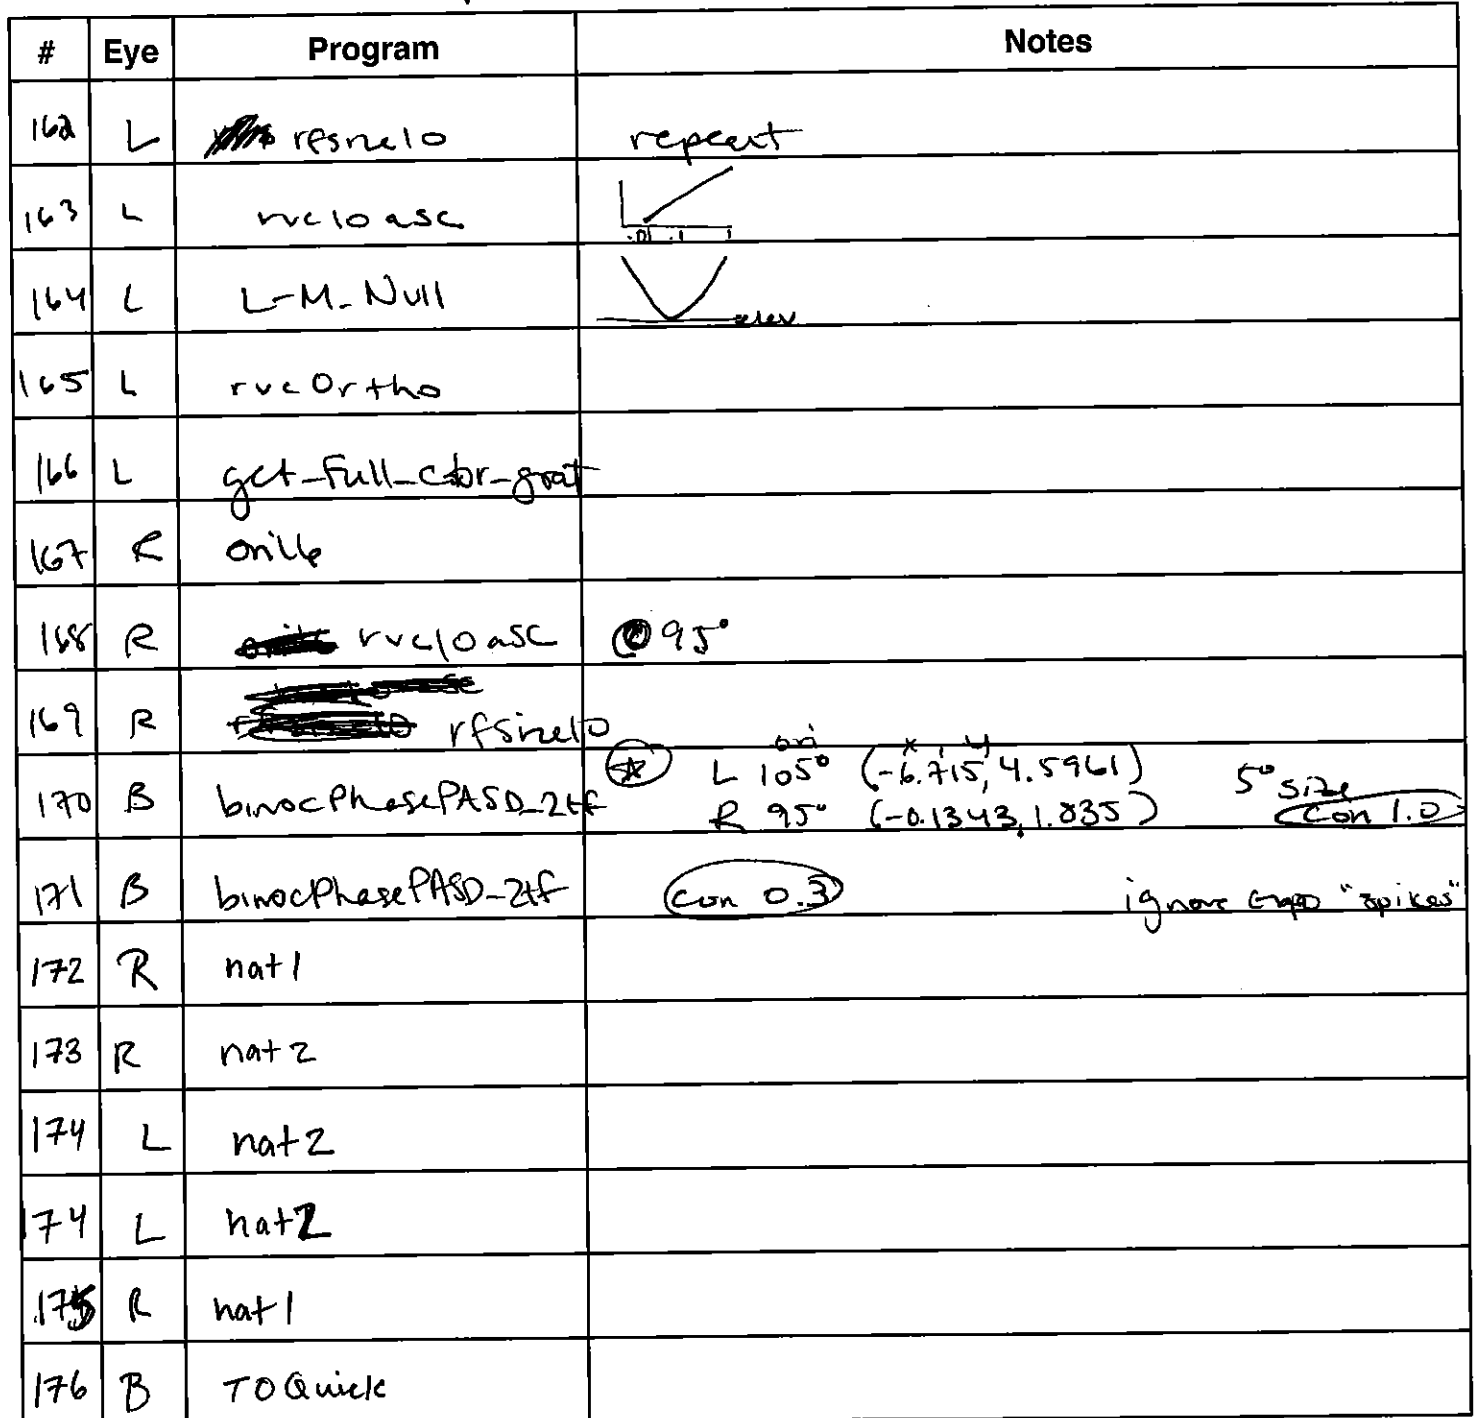 # Eye Program Notes
162 L rfsize10 repeat
163 L rvc10asc .01 .1 1
164 L L-M_Null elev
165 L rvcOrtho
166 L get_full_cbr_grat
167 R ori16
168 R rvc10asc @95°
169 R rfsize10
ori x, y
170 B binocPhasePASD_2tf L 105° (-6.715, 4.5961) 5° size
R 95° (-0.1343, 1.835) con 1.0
171 B binocPhasePASD_2tf con 0.3 ignore Expo "spikes"
172 R nat1
173 R nat2
174 L nat2
174 L nat2
175 R nat1
176 B TOQuick